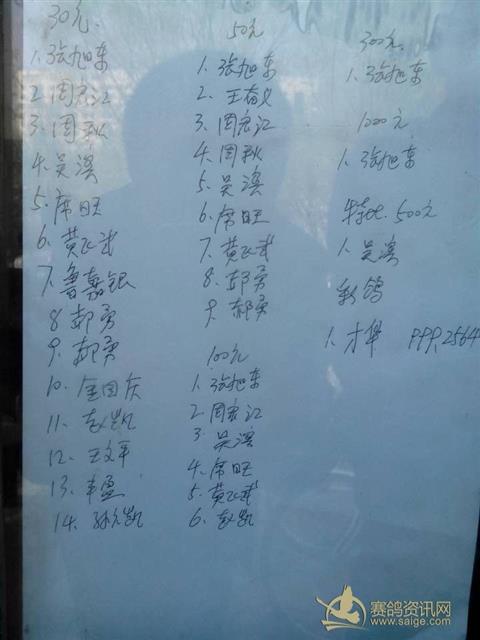 30元.
1.张旭东
2.周宏江
3.周秋
4.吴滨
5.席旺
6.黄飞武
7.鲁嘉银
8.郝勇
9.郝勇
10.金国庆
11.赵凯
12.王文平
13.丰盈
14.孙允凯
50元
1.张旭东
2.王有义
3.周宏江
4.周秋
5.吴滨
6.席旺
7.黄飞武
8.郝勇
9.郝勇
100元
1.张旭东
2.周宏江
3.吴滨
4.席旺
5.黄飞武
6.赵凯
300元.
1.张旭东
1000元
1.张旭东
特比.500元
1.吴滨
彩鸽
1.才华 2564
赛鸽资讯网
www.saige.com